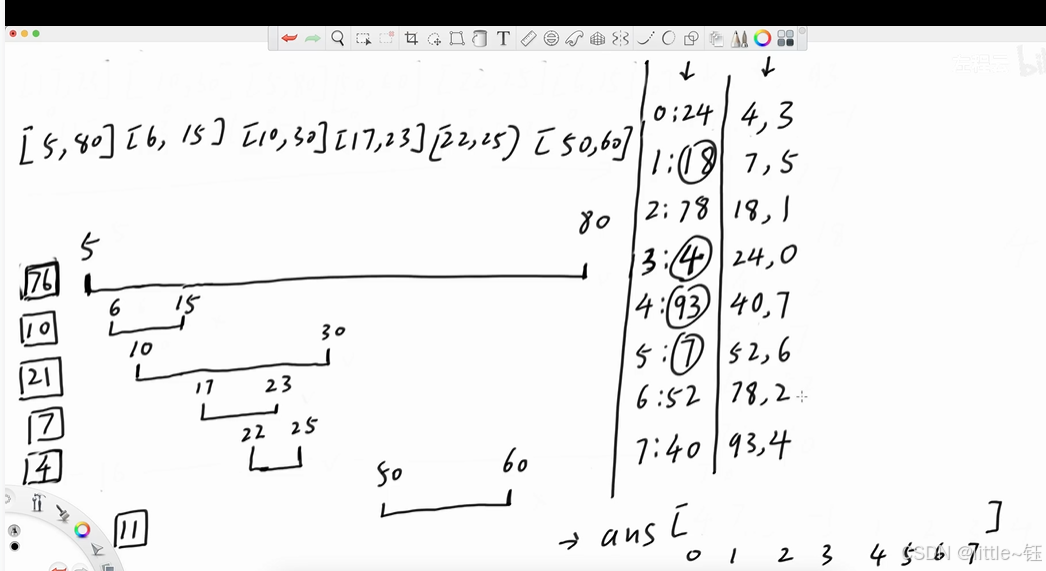 [5,80] [6, 15] [10,30] [17,23] [22,25) [50,60]
5
80
76
6
15
10
10
30
21
17
23
7
22
25
4
50
60
11
0:24 4,3
1:18 7,5
2:78 18,1
3:4 24,0
4:93 40,7
5:7 52,6
6:52 78,2
7:40 93,4
→ ans [ ]
0 1 2 3 4 5 6 7
CSDN @little~钰
T